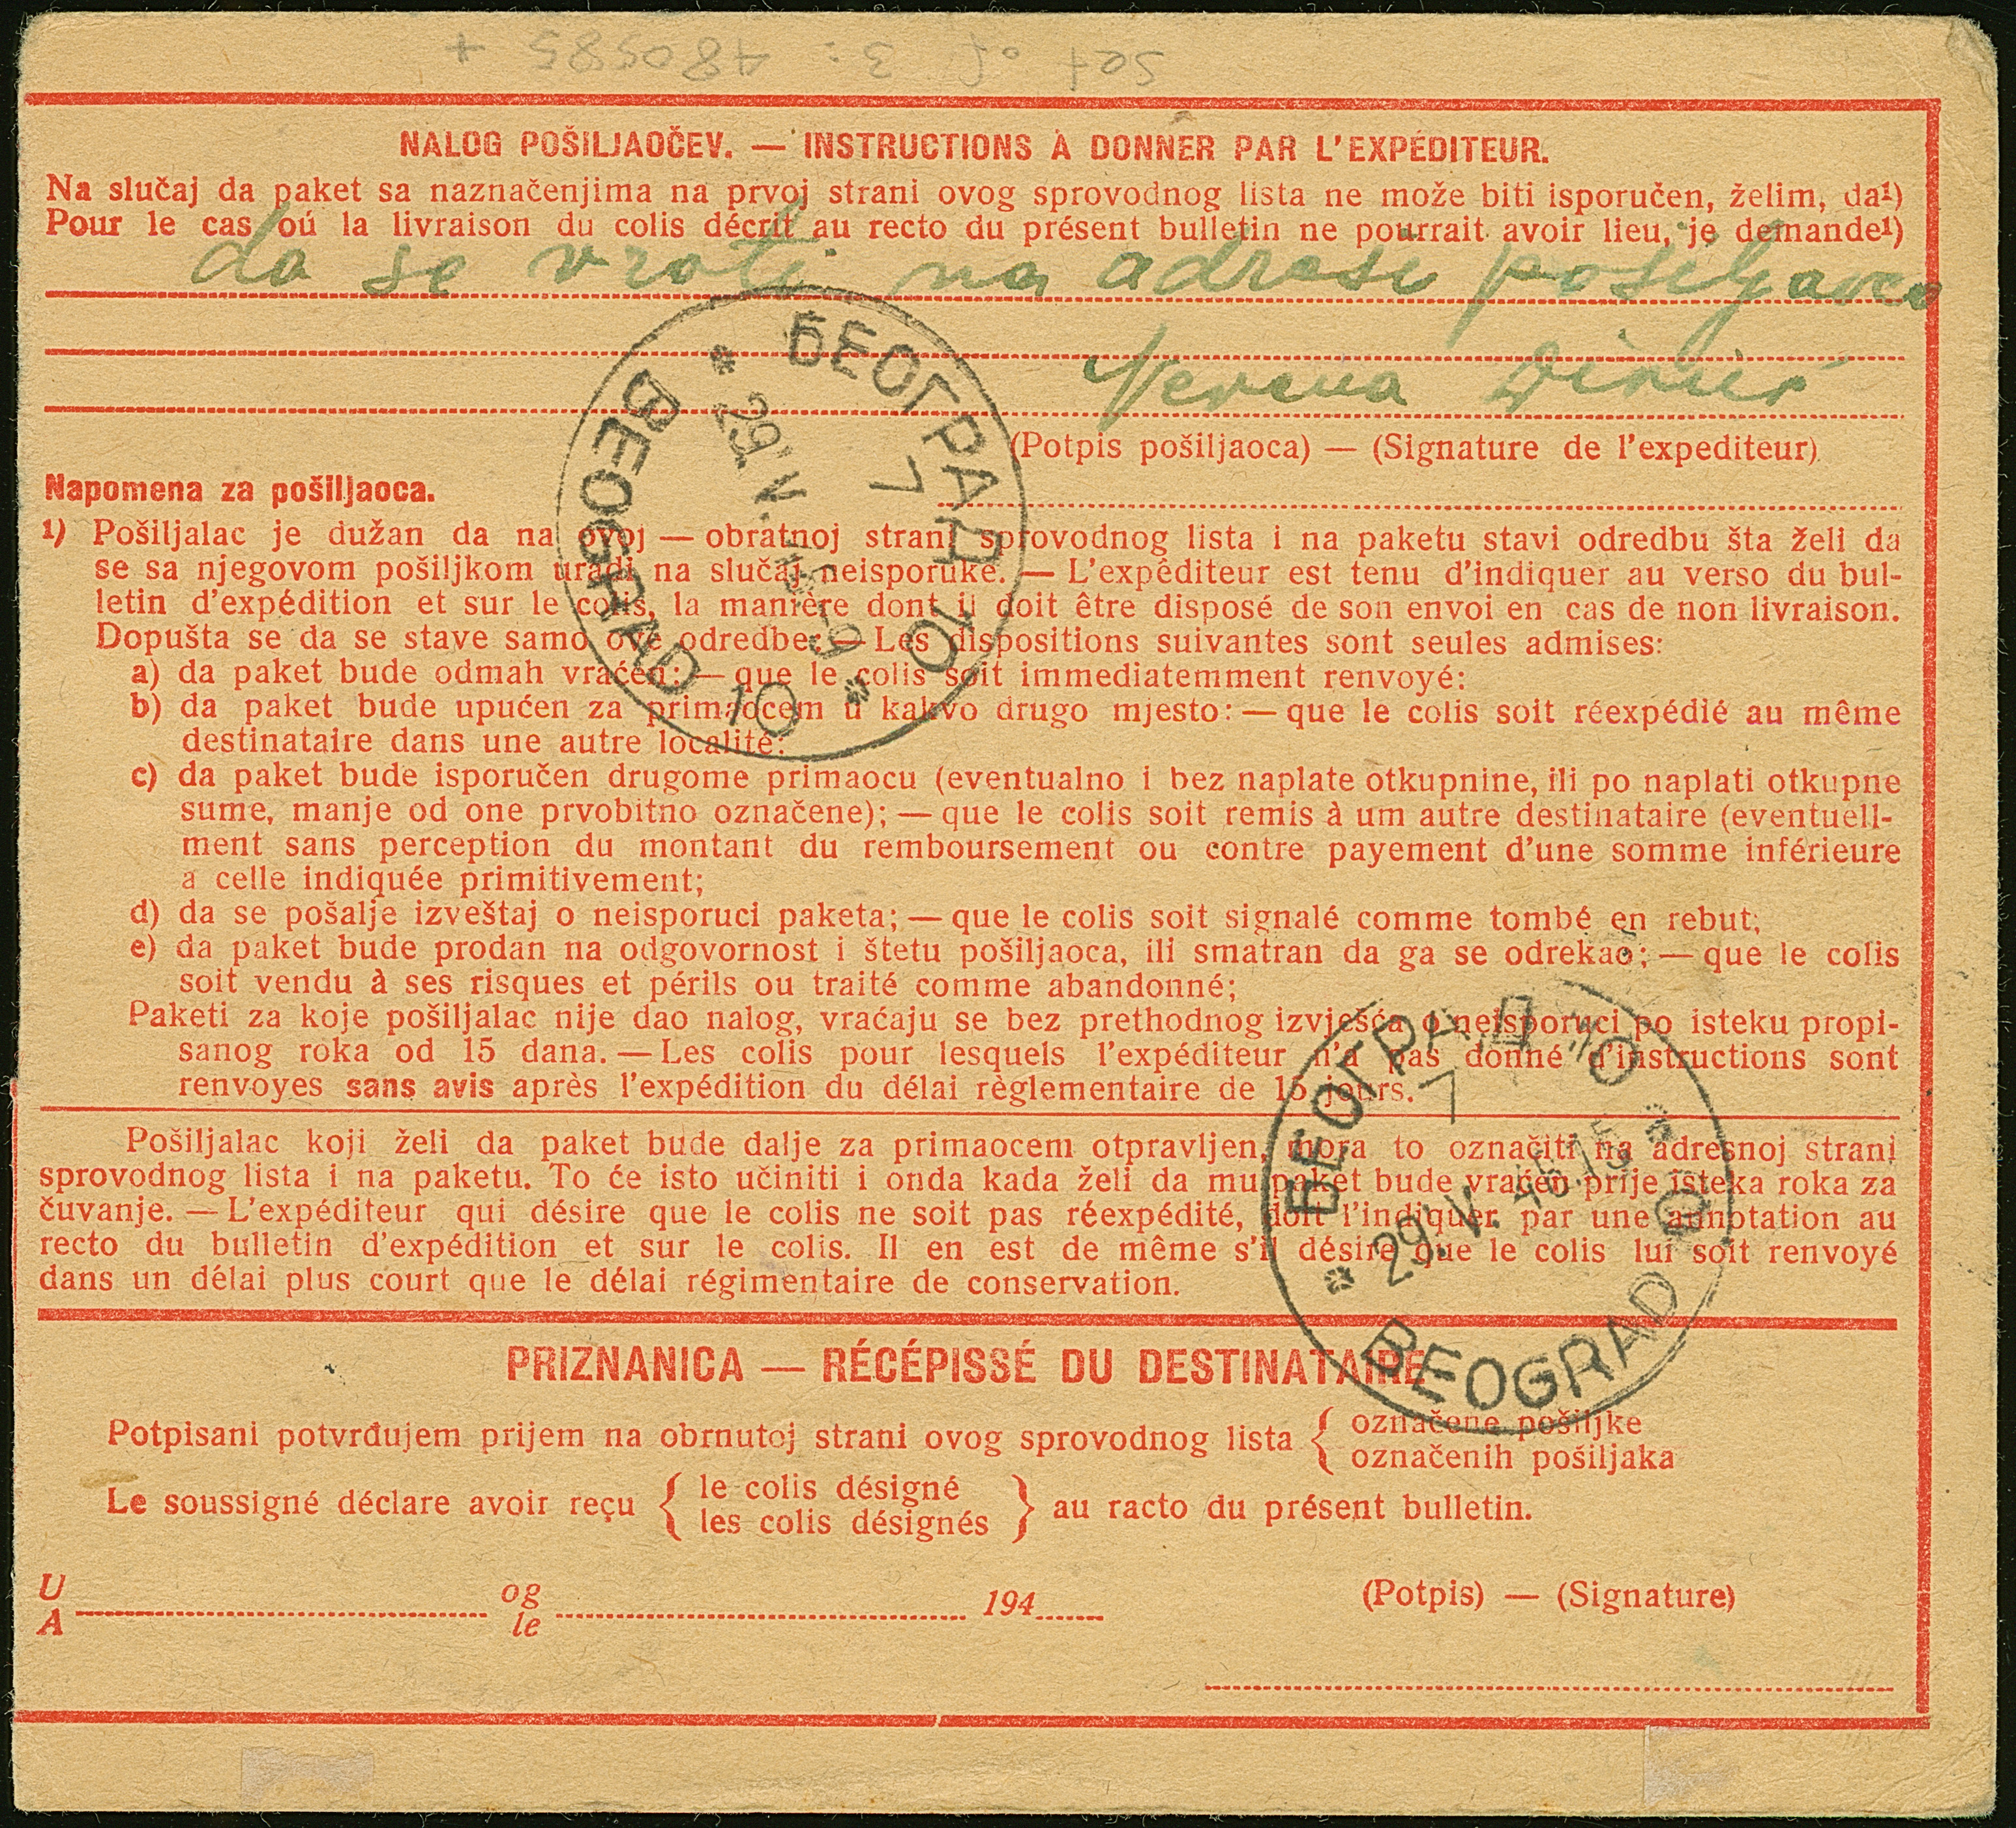 set of 3: 480585 +
NALOG POŠILJAOČEV. — INSTRUCTIONS À DONNER PAR L'EXPÉDITEUR.
Na slučaj da paket sa naznačenjima na prvoj strani ovog sprovodnog lista ne može biti isporučen, želim, da¹)
Pour le cas oú la livraison du colis décrit au recto du présent bulletin ne pourrait avoir lieu, je demande¹)
da se vrati na adresi pošiljaoca
(Potpis pošiljaoca) — (Signature de l'expediteur)
Napomena za pošiljaoca.
1) Pošiljalac je dužan da na ovoj — obratnoj strani sprovodnog lista i na paketu stavi odredbu šta želi da
se sa njegovom pošiljkom uradi na slučaj neisporuke. — L'expéditeur est tenu d'indiquer au verso du bul-
letin d'expédition et sur le colis, la manière dont il doit être disposé de son envoi en cas de non livraison.
Dopušta se da se stave samo ove odredbe: — Les dispositions suivantes sont seules admises:
a) da paket bude odmah vraćen: — que le colis soit immediatemment renvoyé:
b) da paket bude upućen za primaocem u kakvo drugo mjesto: — que le colis soit réexpédié au même
destinataire dans une autre localité:
c) da paket bude isporučen drugome primaocu (eventualno i bez naplate otkupnine, ili po naplati otkupne
sume, manje od one prvobitno označene); — que le colis soit remis à um autre destinataire (eventuell-
ment sans perception du montant du remboursement ou contre payement d'une somme inférieure
a celle indiquée primitivement;
d) da se pošalje izveštaj o neisporuci paketa; — que le colis soit signalé comme tombé en rebut;
e) da paket bude prodan na odgovornost i štetu pošiljaoca, ili smatran da ga se odrekao; — que le colis
soit vendu à ses risques et périls ou traité comme abandonné;
Paketi za koje pošiljalac nije dao nalog, vraćaju se bez prethodnog izvješća o neisporuci po isteku propi-
sanog roka od 15 dana. — Les colis pour lesquels l'expéditeur n'a pas donné d'instructions sont
renvoyes sans avis après l'expédition du délai règlementaire de 15 jours.
Pošiljalac koji želi da paket bude dalje za primaocem otpravljen, mora to označiti na adresnoj strani
sprovodnog lista i na paketu. To će isto učiniti i onda kada želi da mu paket bude vraćen prije isteka roka za
čuvanje. — L'expéditeur qui désire que le colis ne soit pas réexpédité, doit l'indiquer par une annotation au
recto du bulletin d'expédition et sur le colis. Il en est de même s'il désire que le colis lui soit renvoyé
dans un délai plus court que le délai régimentaire de conservation.
PRIZNANICA — RÉCÉPISSÉ DU DESTINATAIRE
Potpisani potvrđujem prijem na obrnutoj strani ovog sprovodnog lista { označene pošiljke
označenih pošiljaka
Le soussigné déclare avoir reçu { le colis désigné
les colis désignés } au racto du présent bulletin.
U og 194
A le
(Potpis) — (Signature)
БЕОГРАД 10
7
29.V.
BEOGRAD 10
БЕОГРАД 10
7
29.V.46.15
BEOGRAD